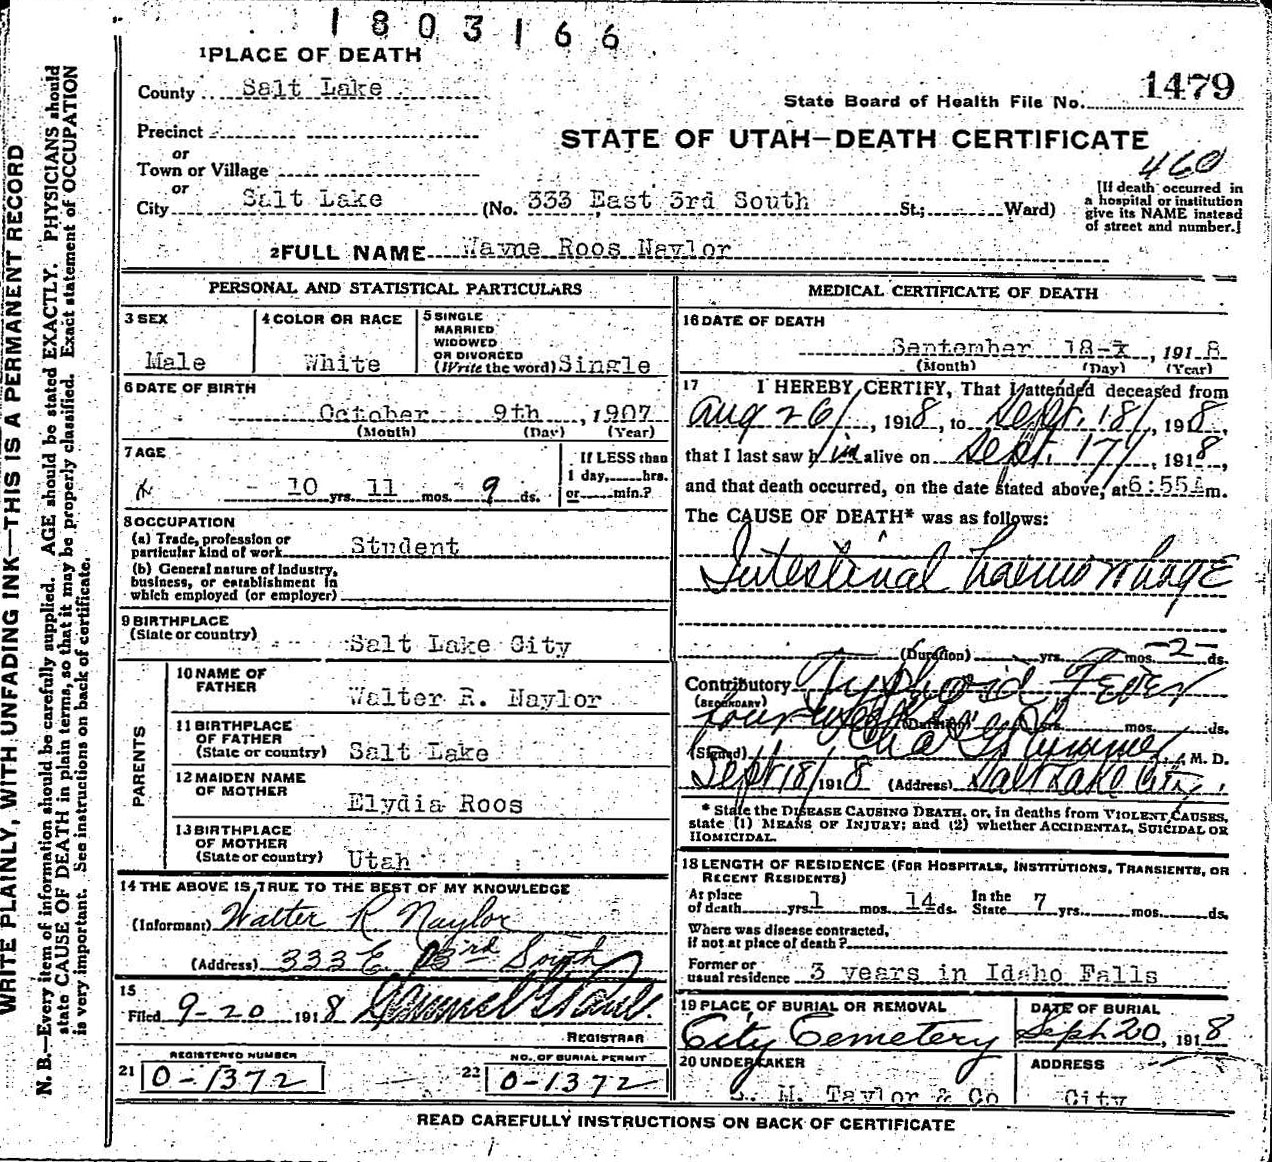 1803166
1PLACE OF DEATH
County Salt Lake
1479
State Board of Health File No.
Precinct
STATE OF UTAH—DEATH CERTIFICATE
or
Town or Village
460
or
City Salt Lake (No. 333 East 3rd South St.; Ward)
[If death occurred in
a hospital or institution
give its NAME instead
of street and number.]
2FULL NAME Wayne Roos Naylor
PERSONAL AND STATISTICAL PARTICULARS
3 SEX
Male
4 COLOR OR RACE
White
5 SINGLE
MARRIED
WIDOWED
OR DIVORCED
(Write the word) Single
6 DATE OF BIRTH
October 9th, 1907
(Month) (Day) (Year)
7 AGE
10 yrs. 11 mos. 9 ds.
If LESS than
1 day, hrs.
or min.?
8 OCCUPATION
(a) Trade, profession or
particular kind of work Student
(b) General nature of industry,
business, or establishment in
which employed (or employer)
9 BIRTHPLACE
(State or country) Salt Lake City
PARENTS
10 NAME OF
FATHER
Walter R. Naylor
11 BIRTHPLACE
OF FATHER
(State or country) Salt Lake
12 MAIDEN NAME
OF MOTHER
Elydia Roos
13 BIRTHPLACE
OF MOTHER
(State or country) Utah
14 THE ABOVE IS TRUE TO THE BEST OF MY KNOWLEDGE
(Informant) Walter R Naylor
(Address) 333 E 3rd South
15
Filed 9-20 1918
REGISTRAR
REGISTERED NUMBER
21 0-1372
NO. OF BURIAL PERMIT
22 0-1372
MEDICAL CERTIFICATE OF DEATH
16 DATE OF DEATH
September 18-x, 1918
(Month) (Day) (Year)
17 I HEREBY CERTIFY, That I attended deceased from
Aug 26/, 1918, to Sept. 18/, 1918,
that I last saw him alive on Sept. 17/, 1918,
and that death occurred, on the date stated above, at 6:55A m.
The CAUSE OF DEATH* was as follows:
Intestinal haemorrhage
(Duration) yrs. mos. -2- ds.
Contributory Typhoid Fever
(SECONDARY)
four weeks (Duration) yrs. mos. ds.
(Signed) Chas G Plummer, M. D.
Sept 18/ 1918 (Address) Salt Lake City.
* State the DISEASE CAUSING DEATH, or, in deaths from VIOLENT CAUSES,
state (1) MEANS OF INJURY; and (2) whether ACCIDENTAL, SUICIDAL OR
HOMICIDAL.
18 LENGTH OF RESIDENCE (FOR HOSPITALS, INSTITUTIONS, TRANSIENTS, OR
RECENT RESIDENTS)
At place
of death yrs. 1 mos. 14 ds. In the
State 7 yrs. mos. ds.
Where was disease contracted,
if not at place of death?
Former or
usual residence 3 years in Idaho Falls
19 PLACE OF BURIAL OR REMOVAL
City Cemetery
DATE OF BURIAL
Sept 20, 1918
20 UNDERTAKER
M. Taylor & Co
ADDRESS
City
READ CAREFULLY INSTRUCTIONS ON BACK OF CERTIFICATE
WRITE PLAINLY, WITH UNFADING INK—THIS IS A PERMANENT RECORD
N. B.—Every item of information should be carefully supplied. AGE should be stated EXACTLY. PHYSICIANS should
state CAUSE OF DEATH in plain terms, so that it may be properly classified. Exact statement of OCCUPATION
is very important. See instructions on back of certificate.